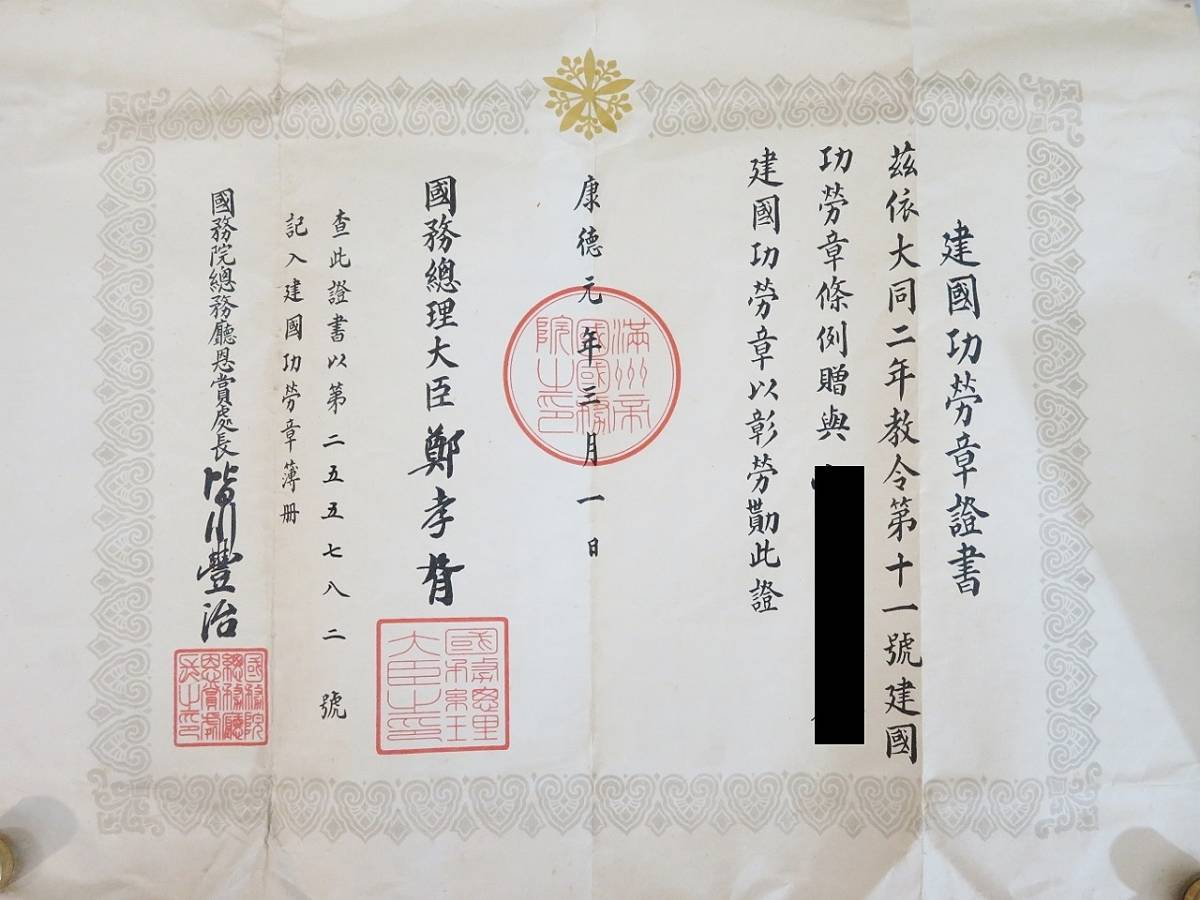 建國功勞章證書
茲依大同二年教令第十一號建國
功勞章條例贈與
建國功勞章以彰勞勩此證
康德元年三月一日
滿洲帝國國務院之印
國務總理大臣鄭孝胥
國務總理大臣之印
查此證書以第二五五七八二號
記入建國功勞章簿册
國務院總務廳恩賞處長皆川豐治
國務院總務廳恩賞處長之印